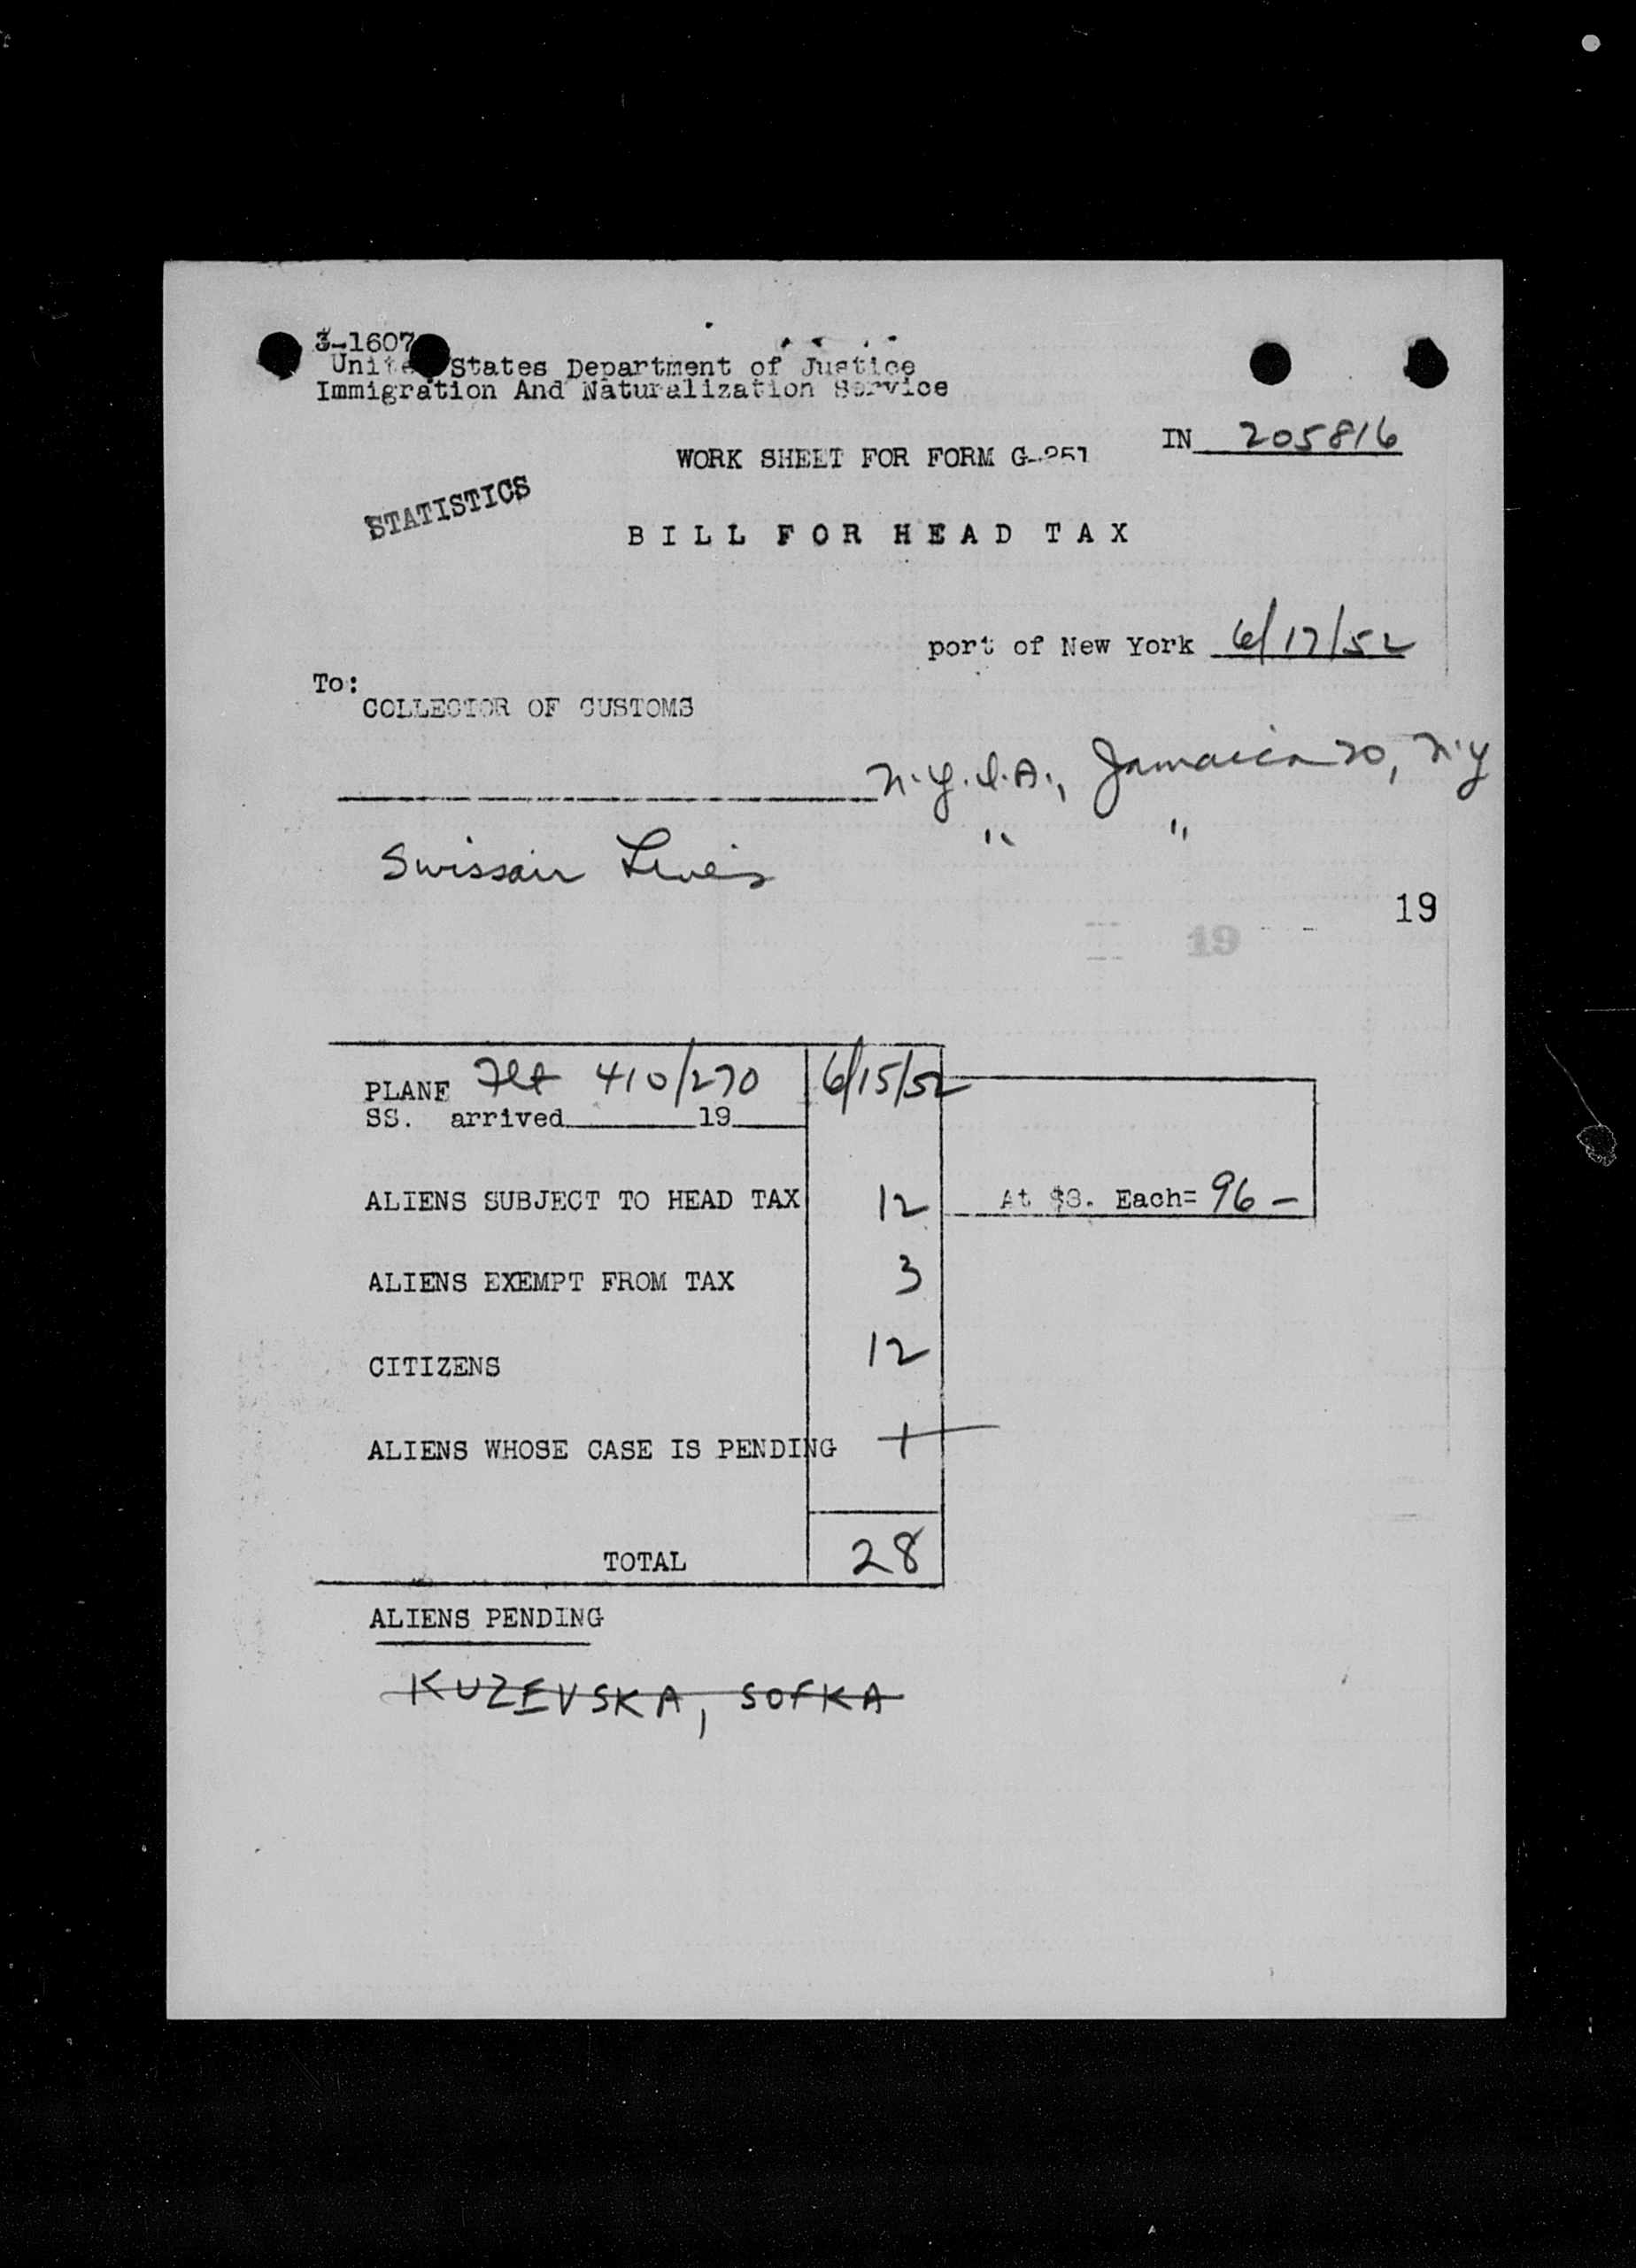 3-1607
United States Department of Justice
Immigration And Naturalization Service
IN 205816
WORK SHEET FOR FORM G-251
STATISTICS
BILL FOR HEAD TAX
port of New York 6/17/52
To:
COLLECTOR OF CUSTOMS
N.Y.I.A., Jamaica 20, N.Y
" "
Swissair Lines
19
19
PLANE Flt 410/270 6/15/52
SS. arrived 19
ALIENS SUBJECT TO HEAD TAX 12 At $8. Each= 96 —
ALIENS EXEMPT FROM TAX 3
CITIZENS 12
ALIENS WHOSE CASE IS PENDING 1
TOTAL 28
ALIENS PENDING
KUZEVSKA, SOFKA